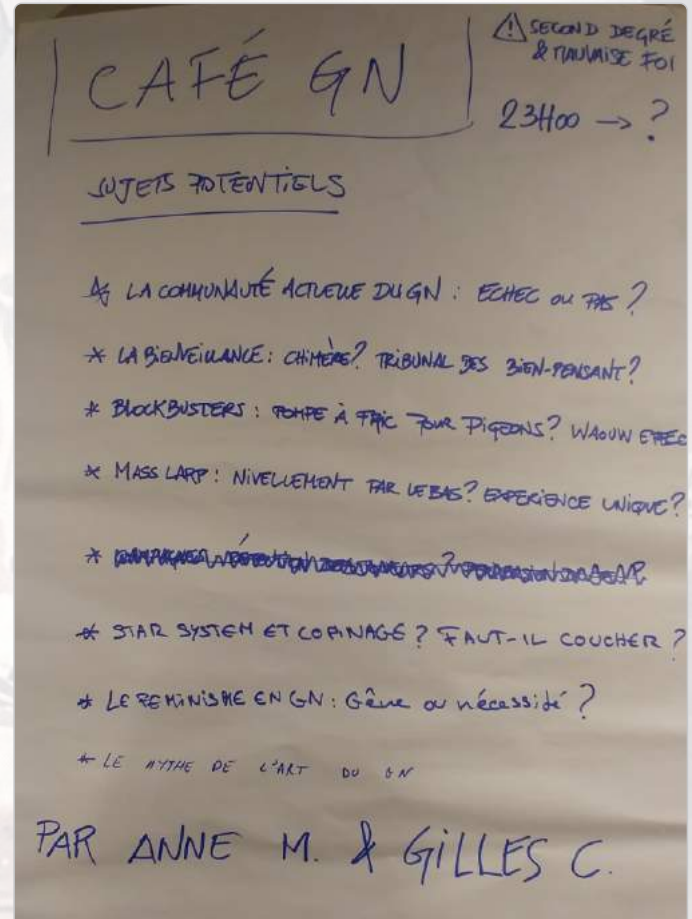 CAFÉ GN
⚠ SECOND DEGRÉ
& MAUVAISE FOI
23H00 → ?
SUJETS POTENTIELS
* LA COMMUNAUTÉ ACTUELLE DU GN : ECHEC OU PAS ?
* LA BIENVEILLANCE : CHIMÈRE ? TRIBUNAL DES BIEN-PENSANT ?
* BLOCKBUSTERS : POMPE À FRIC POUR PIGEONS ? WAOUW EFFEC
* MASS LARP : NIVELLEMENT PAR LE BAS ? EXPERIENCE UNIQUE ?
* STAR SYSTEM ET COPINAGE ? FAUT-IL COUCHER ?
* LE FEMINISME EN GN : Gêne ou nécessité ?
* LE MYTHE DE L'ART DU GN
PAR ANNE M. & GILLES C.